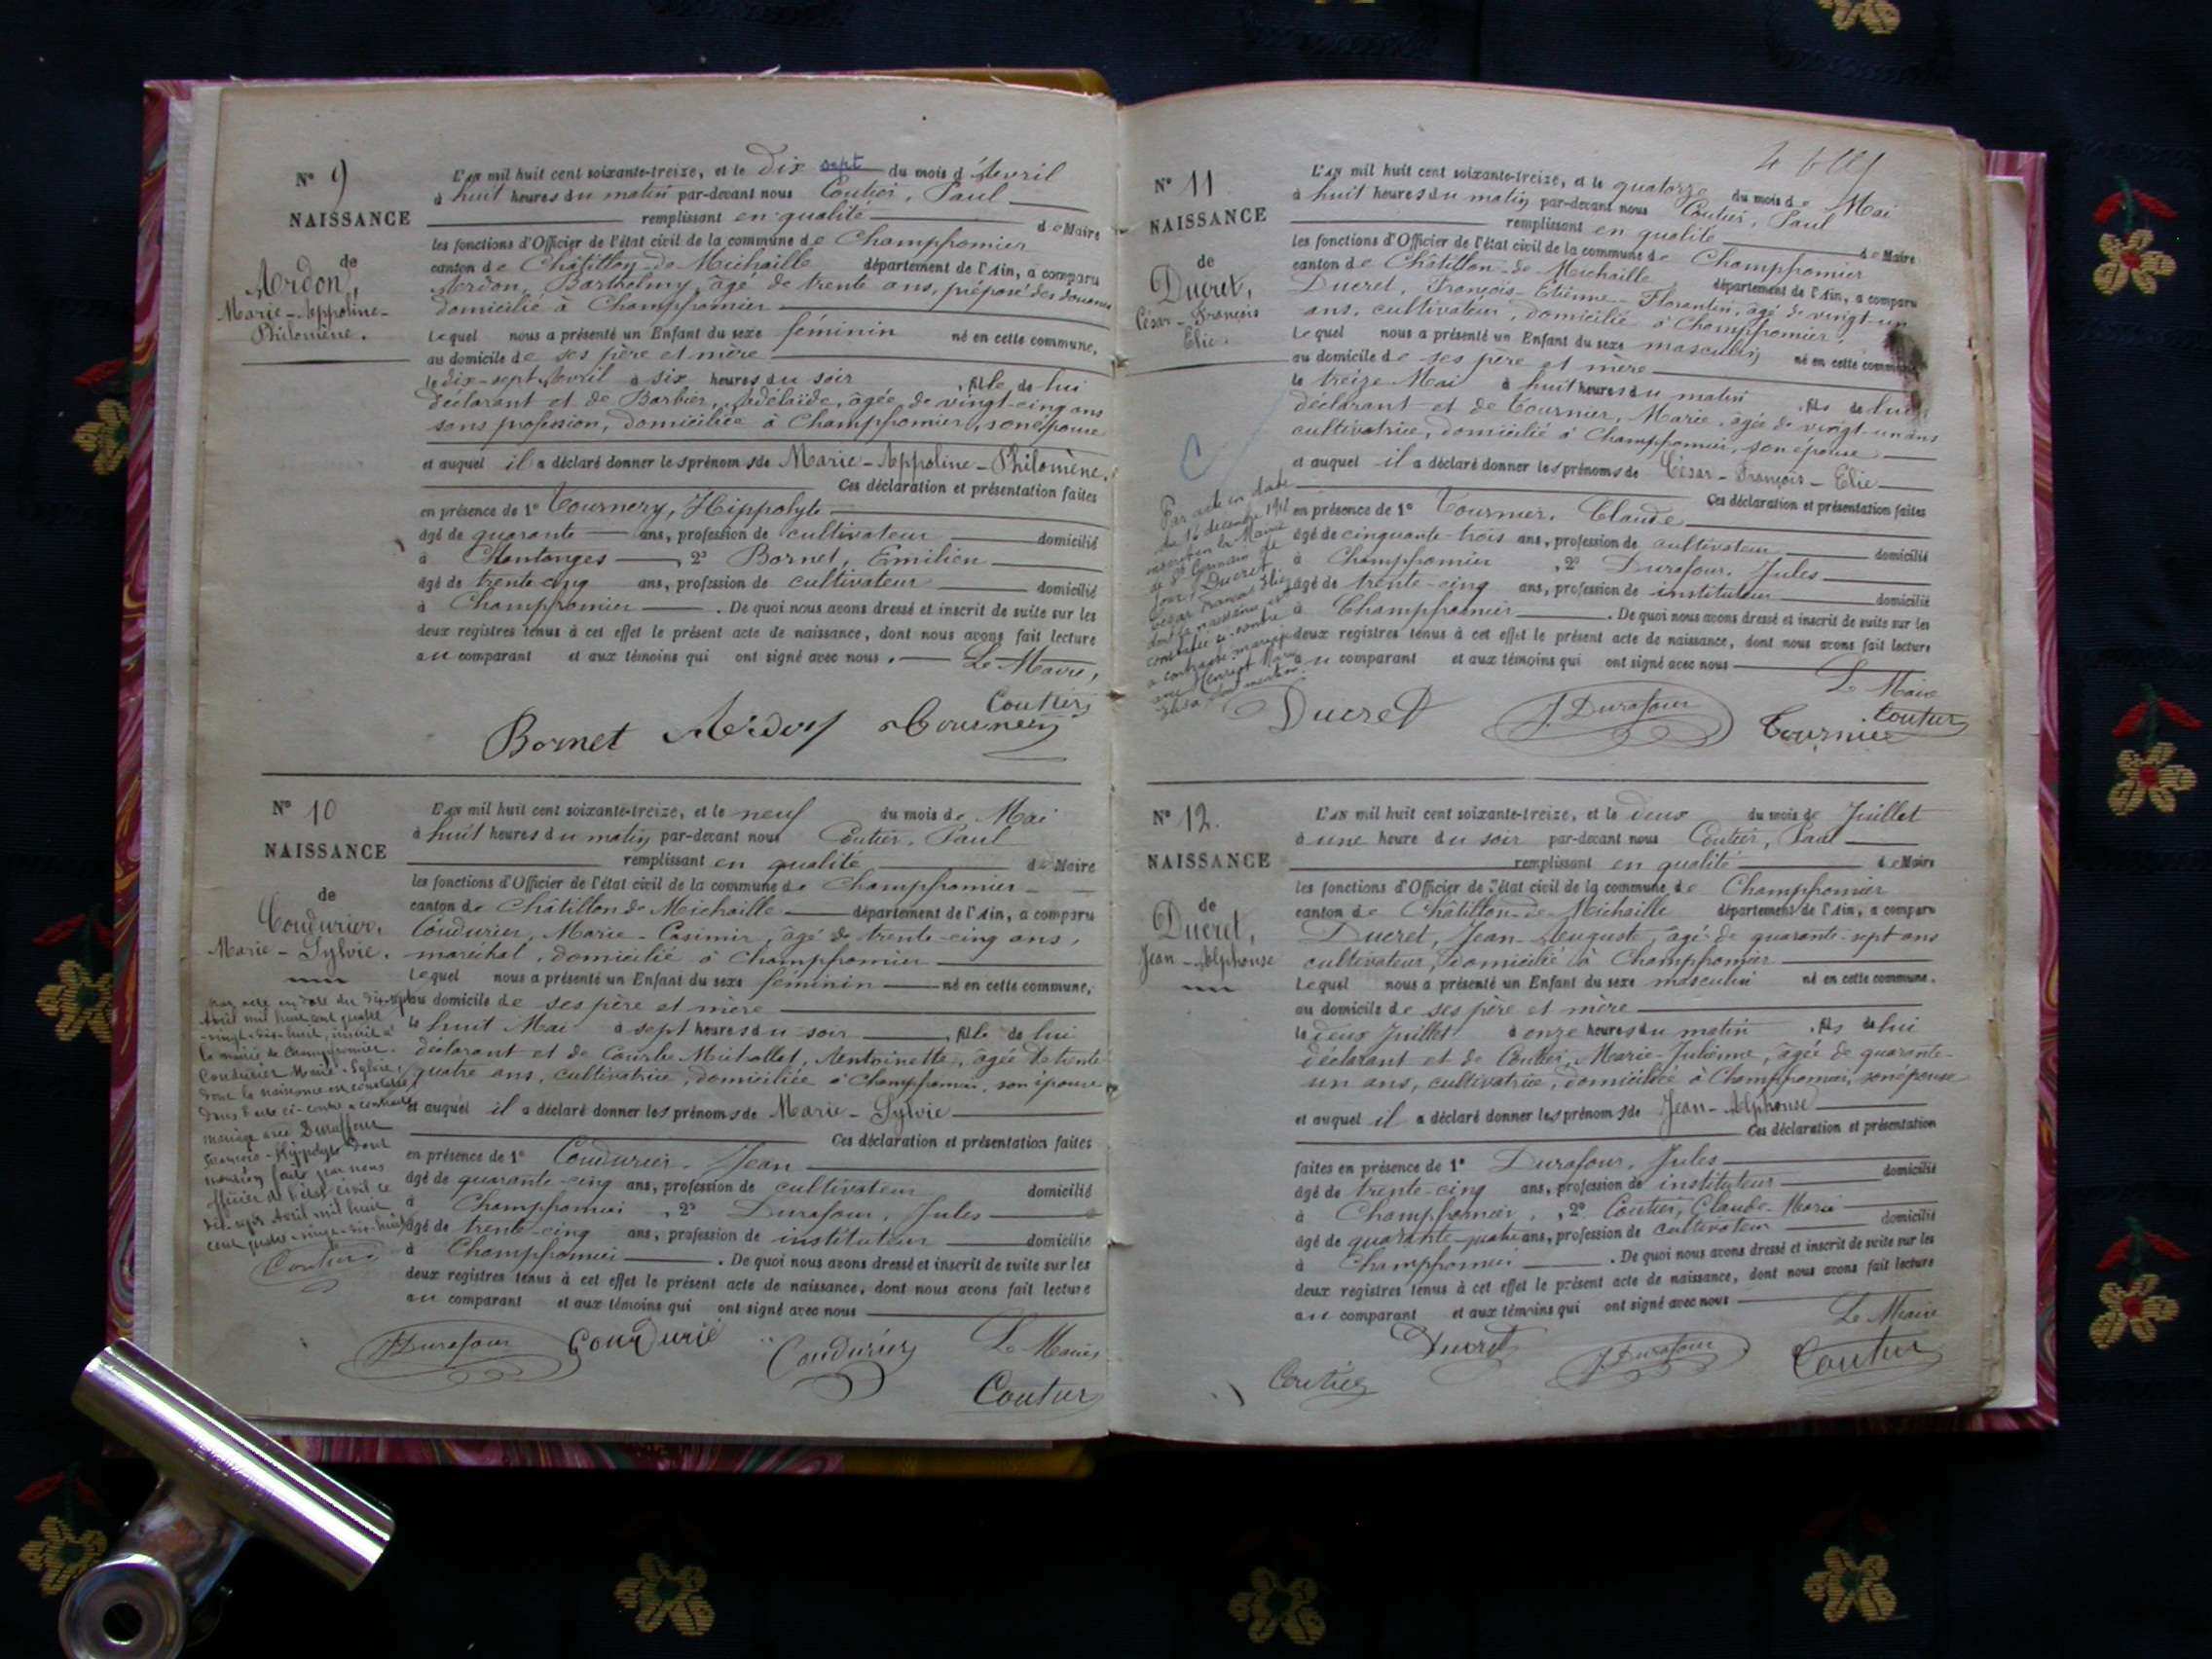 N° 9
NAISSANCE
de
Ardon,
Marie-Appoline-
Philomène.
L'AN mil huit cent soixante-treize, et le Dix sept du mois d'Avril
à huit heures du matin par-devant nous Coutier, Paul
remplissant en qualité de Maire
les fonctions d'Officier de l'état civil de la commune de Champfromier
canton de Châtillon-de-Michaille département de l'Ain, a comparu
Ardon, Barthelmy, âgé de trente ans, préposé des douanes
domicilié à Champfromier
Lequel nous a présenté un Enfant du sexe féminin né en cette commune,
au domicile de ses père et mère
le dix-sept Avril à six heures du soir, fille de lui
déclarant et de Barbier, Adélaïde, âgée de vingt-cinq ans
sans profession, domiciliée à Champfromier, son épouse
et auquel il a déclaré donner les prénoms de Marie-Appoline-Philomène.
Ces déclaration et présentation faites
en présence de 1° Tournery, Hippolyte
âgé de quarante ans, profession de cultivateur domicilié
à Montanges, 2° Bornet, Emilien
âgé de trente cinq ans, profession de cultivateur domicilié
à Champfromier. De quoi nous avons dressé et inscrit de suite sur les
deux registres tenus à cet effet le présent acte de naissance, dont nous avons fait lecture
au comparant et aux témoins qui ont signé avec nous. Le Maire,
Coutier
Bornet Ardon Tournery
N° 10
NAISSANCE
de
Coudurier,
Marie-Sylvie.
L'AN mil huit cent soixante-treize, et le neuf du mois de Mai
à huit heures du matin par-devant nous Coutier, Paul
remplissant en qualité de Maire
les fonctions d'Officier de l'état civil de la commune de Champfromier
canton de Châtillon de Michaille département de l'Ain, a comparu
Coudurier, Marie-Casimir, âgé de trente-cinq ans,
maréchal, domicilié à Champfromier
Lequel nous a présenté un Enfant du sexe féminin né en cette commune,
au domicile de ses père et mère
le huit Mai à sept heures du soir, fille de lui
déclarant et de Michollet, Antoinette, âgée de trente
quatre ans, cultivatrice, domiciliée à Champfromier, son épouse
et auquel il a déclaré donner les prénoms de Marie-Sylvie
Ces déclaration et présentation faites
en présence de 1° Coudurier, Jean
âgé de quarante-cinq ans, profession de cultivateur domicilié
à Champfromier, 2° Durafour, Jules
âgé de trente-cinq ans, profession de instituteur domicilié
à Champfromier. De quoi nous avons dressé et inscrit de suite sur les
deux registres tenus à cet effet le présent acte de naissance, dont nous avons fait lecture
au comparant et aux témoins qui ont signé avec nous
JDurafour Coudurié Coudurier Le Maire
Coutier
par acte en date du dix-sept
Avril mil huit cent quatre
-vingt-dix-huit, inscrit à
la mairie de Champfromier.
Coudurier Marie-Sylvie,
dont la naissance est constatée
dans l'acte ci-contre a contracté
mariage avec Duraffour
François-Hippolyte dont
mention faite par nous
officier de l'état civil le
dix-sept Avril mil huit
cent quatre-vingt-dix-huit
Coutier
N° 11
NAISSANCE
de
Ducret,
César-François
Elie.
L'AN mil huit cent soixante-treize, et le quatorze du mois de Mai
à huit heures du matin par-devant nous Coutier, Paul
remplissant en qualité de Maire
les fonctions d'Officier de l'état civil de la commune de Champfromier
canton de Châtillon-de-Michaille département de l'Ain, a comparu
Ducret, François-Etienne-Florentin, âgé de vingt-un
ans, cultivateur, domicilié à Champfromier,
Lequel nous a présenté un Enfant du sexe masculin né en cette commune
au domicile de ses père et mère
le treize Mai à huit heures du matin, fils de lui
déclarant et de Tournier, Marie, âgée de vingt-un ans
cultivatrice, domicilié à Champfromier, son épouse
et auquel il a déclaré donner les prénoms de César-François-Elie
Ces déclaration et présentation faites
en présence de 1° Tournier, Claude
âgé de cinquante-trois ans, profession de cultivateur domicilié
à Champfromier, 2° Durafour, Jules
âgé de trente-cinq ans, profession de instituteur domicilié
à Champfromier. De quoi nous avons dressé et inscrit de suite sur les
deux registres tenus à cet effet le présent acte de naissance, dont nous avons fait lecture
au comparant et aux témoins qui ont signé avec nous
Le Maire
Ducret JDurafour Tournier Coutier
Par acte en date
du 16 décembre
inscrit en la Mairie
de St Germain de
Joux, Ducret
César François Elie
dont la naissance est
constatée ci-contre
a contracté mariage
avec Henriot Marie
dont mention.
N° 12.
NAISSANCE
de
Ducret,
Jean-Alphonse
L'AN mil huit cent soixante-treize, et le deux du mois de Juillet
à une heure du soir par-devant nous Coutier, Paul
remplissant en qualité de Maire
les fonctions d'Officier de l'état civil de la commune de Champfromier
canton de Châtillon-de-Michaille département de l'Ain, a comparu
Ducret, Jean-Auguste, âgé de quarante-sept ans
cultivateur, domicilié à Champfromier
Lequel nous a présenté un Enfant du sexe masculin né en cette commune.
au domicile de ses père et mère
le deux Juillet à onze heures du matin, fils de lui
déclarant et de Coutier, Marie-Julienne, âgée de quarante-
un ans, cultivatrice, domiciliée à Champfromier, son épouse
et auquel il a déclaré donner les prénoms de Jean-Alphonse
Ces déclaration et présentation
faites en présence de 1° Durafour, Jules domicilié
âgé de trente-cinq ans, profession de instituteur
à Champfromier, 2° Coutier, Claude-Marie
âgé de quarante-quatre ans, profession de cultivateur domicilié
à Champfromier. De quoi nous avons dressé et inscrit de suite sur les
deux registres tenus à cet effet le présent acte de naissance, dont nous avons fait lecture
au comparant et aux témoins qui ont signé avec nous
Le Maire
Coutier Ducret JDurafour Coutier